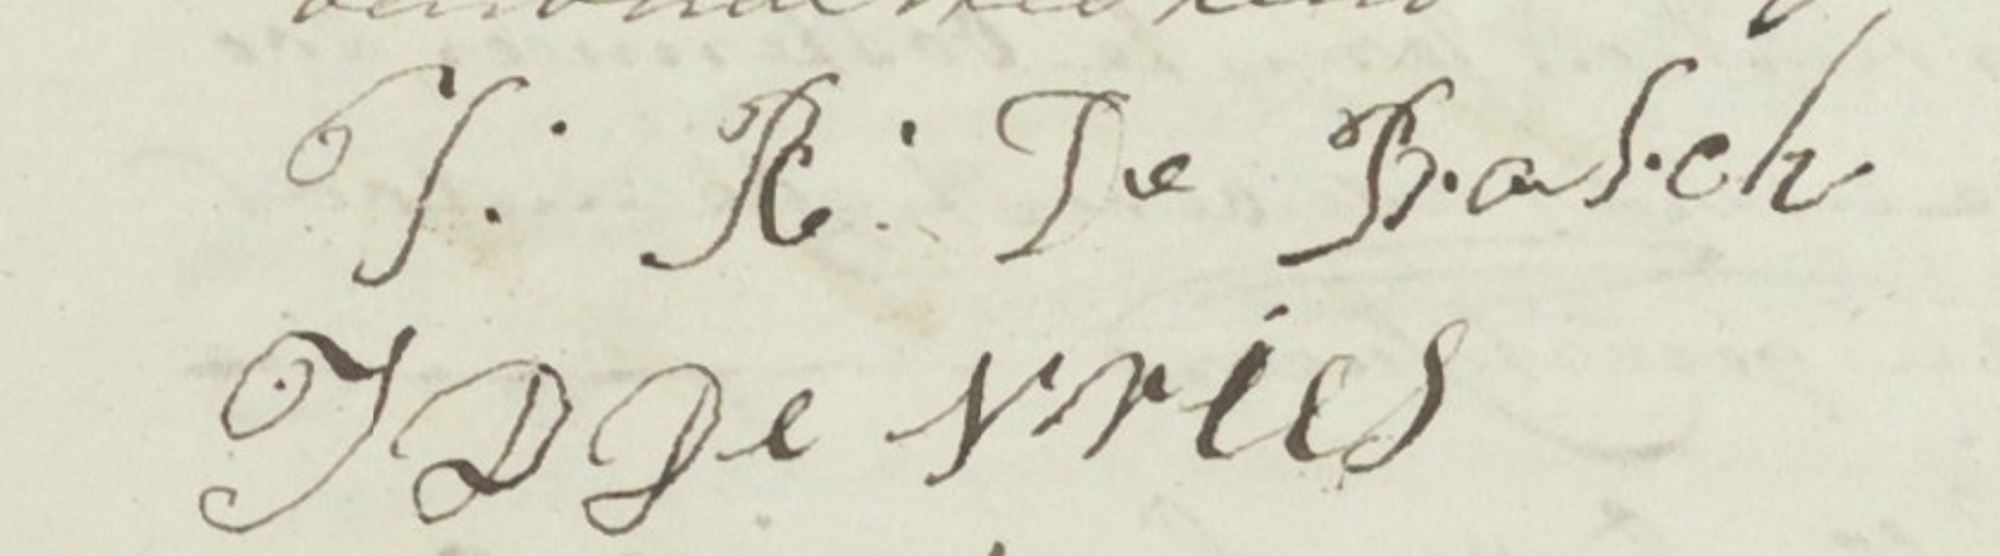 J: R: De Basch
J D De vries